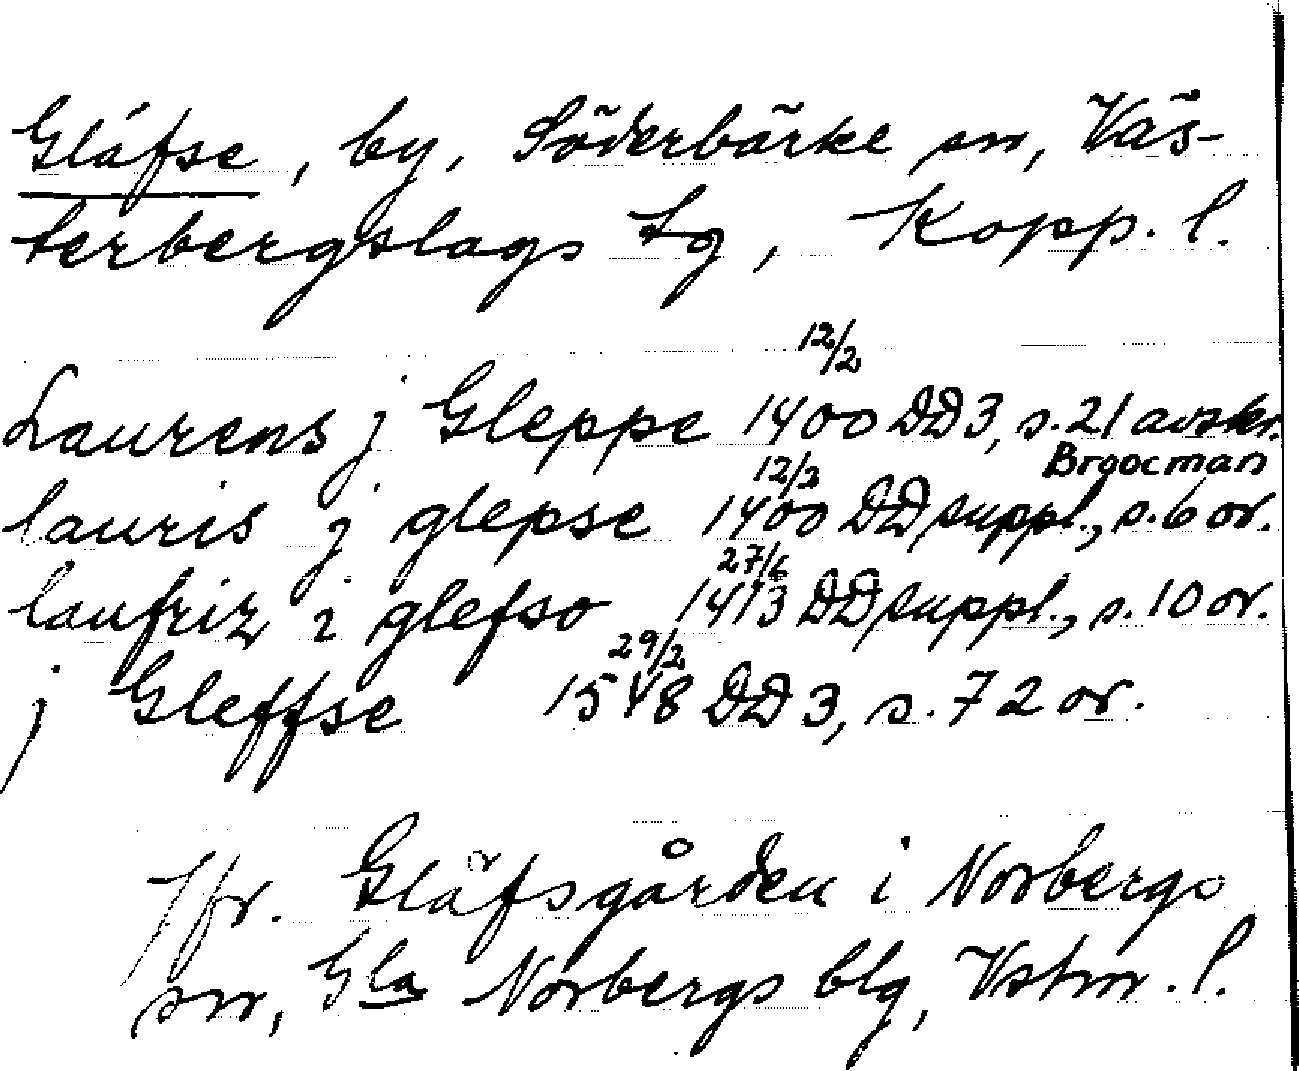 Gläfse, by, Söderbärke sn, Väs-
terbergslags tg, Kopp. l.
Laurens j Gleppe 12/2 1400 DD 3, s. 21 avskr. Broocman
lauris j glepse 12/3 1400 DD suppl., s. 6 or.
laufriz i glefso 27/6 1413 DD suppl., s. 10 or.
j Gleffse 29/2 1548 DD 3, s. 72 or.
Jfr. Gläfsgården i Norbergs
sn, Gla Norbergs blg, Vstm. l.